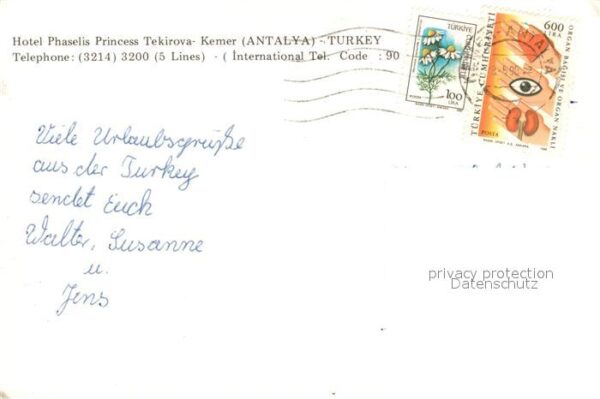 Hotel Phaselis Princess Tekirova- Kemer (ANTALYA) - TURKEY
Telephone: (3214) 3200 (5 Lines) - ( İnternational Tel. Code : 90
TÜRKİYE
100
LİRA
600
LİRA
TÜRKİYE CUMHURİYETİ
ORGAN BAĞIŞI VE ORGAN NAKLİ
POSTA
ANTALYA
Viele Urlaubsgrüße
aus der Turkey
sendet Euch
Walter, Susanne
u.
Jens
privacy protection
Datenschutz